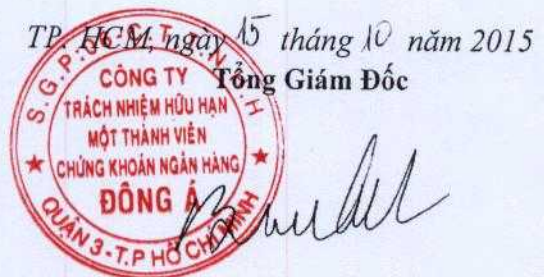 TP. HCM, ngày 15 tháng 10 năm 2015
Tổng Giám Đốc
CÔNG TY
TRÁCH NHIỆM HỮU HẠN
MỘT THÀNH VIÊN
CHỨNG KHOÁN NGÂN HÀNG
ĐÔNG Á
QUẬN 3 - T.P HỒ CHÍ MINH